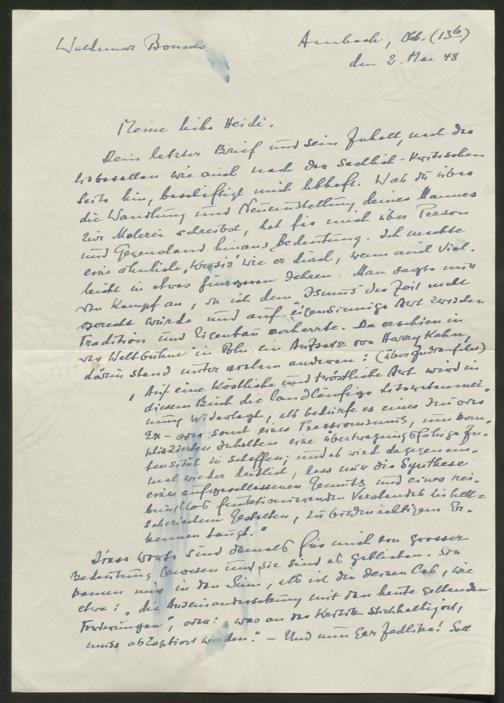 Waldemar Bonsels
Ambach, Obb. (13b)
den 2. Mai 48
Meine liebe Heidi.
Dein letzter Brief und sein Inhalt, nach der
liebevollen wie auch nach der sachlich-kritischen
Seite hin, beschäftigt mich lebhaft. Was du über
die Wandlung und Neueinstellung deines Mannes
zur Malerei schreibst, hat für mich über Person
und Gegenstand hinaus Bedeutung. Ich machte
eine ähnliche "Krisis" wie er durch, wenn auch viel-
leicht in etwas jüngeren Jahren. Man sagte mir
den Kampf an, da ich dem "Ismus" der Zeit nicht
gerecht würde und auf eigensinnige Art zwischen
Tradition und Eigenbau verharrte. Da erschien in
der Weltbühne in Bln. ein Aufsatz von Harry Kahn,
darin stand unter vielem anderen:
"Auf eine köstliche und tröstliche Art wird in
diesem Buch die landläufige Literatenmei-
nung widerlegt, als bedürfe es eines In- oder
Ex- oder sonst eines Pressionismus, um kom-
plizierten Inhalten eine übertragungsfähige In-
tensität zu schaffen; und es wird dagegen ein-
mal wieder deutlich, dass nur die Synthese
eines aufgeschlossenen Gemüts und eines rei-
bungslos funktionierenden Verstandes zu hell-
seherischem Gestalten, zu bildmächtigem Er-
kennen taugt."
Diese Worte sind damals für mich von grosser
Bedeutung gewesen und sie sind es geblieben. Sie
kamen mir in den Sinn, als ich den deinen las, wie
etwa: "die Auseinandersetzung mit den heute geltenden
Forderungen", oder: "was an der Kritik stichhaltig ist,
muss akzeptiert werden." - Und nun gar Jedlicka! Soll